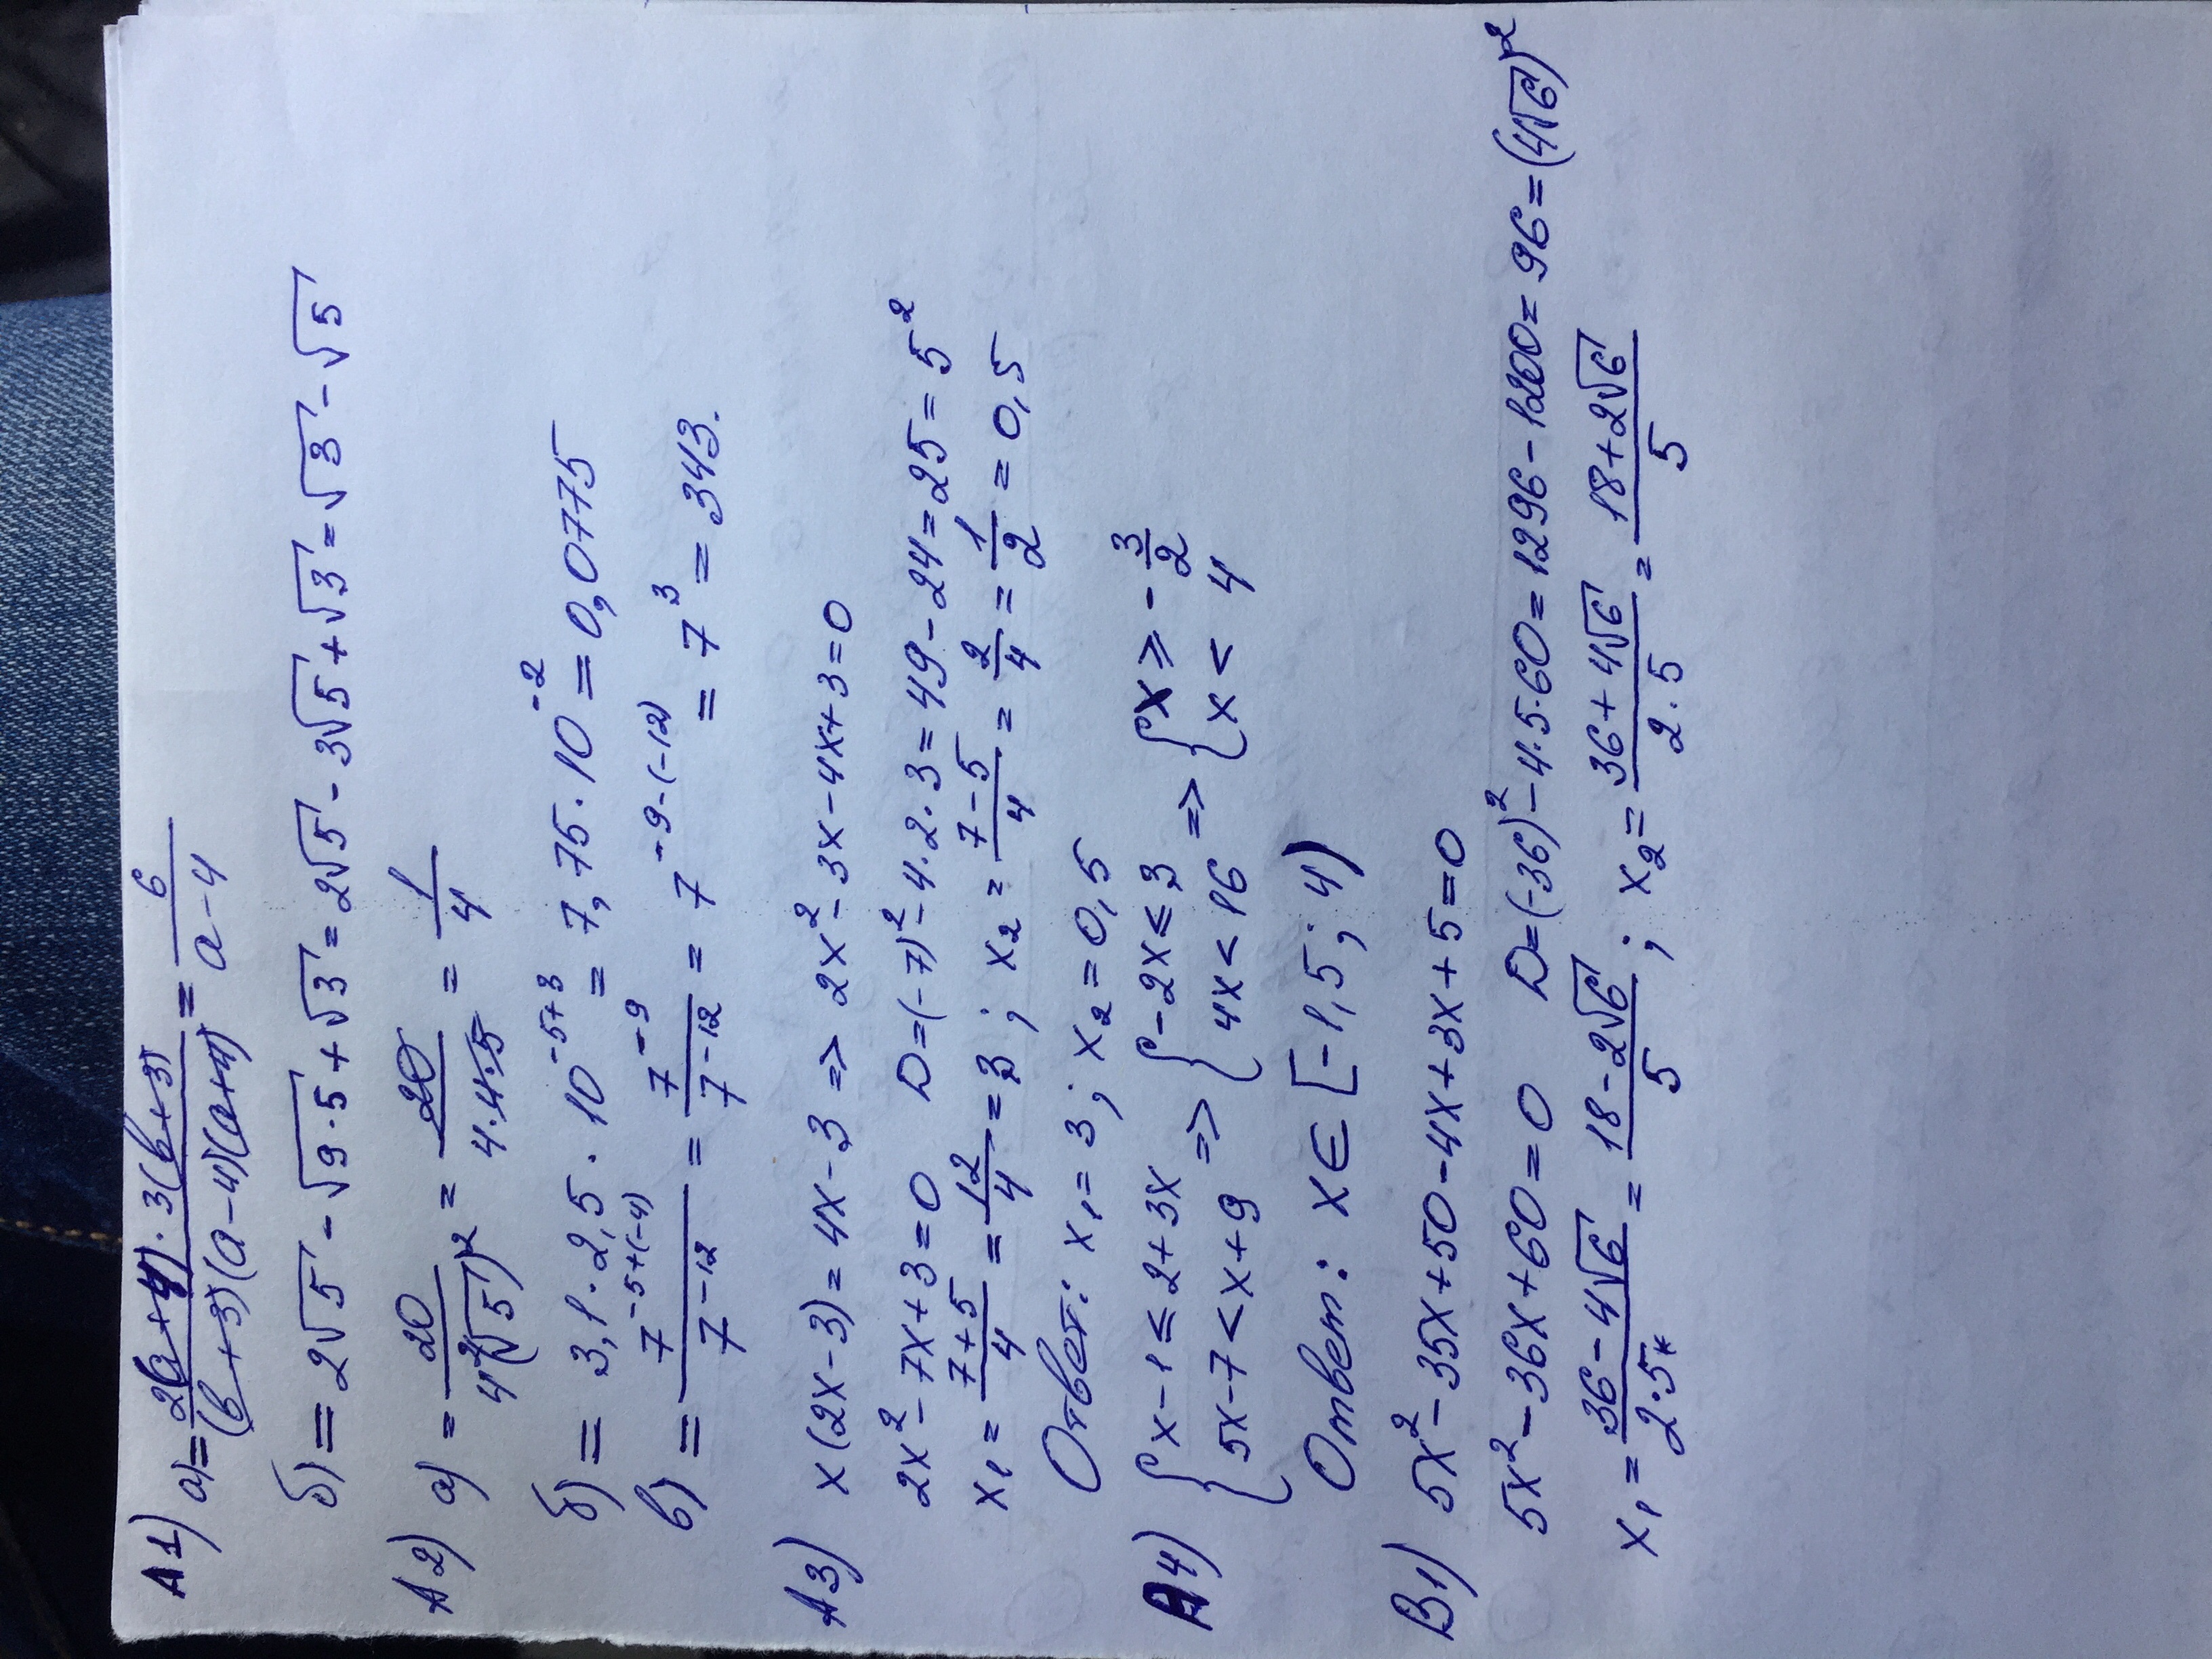 А1) а) = 2(a+4) · 3(b+3) / (b+3)(a-4)(a+4) = 6 / a-4
б) = 2√5 - √9·5 + √3 = 2√5 - 3√5 + √3 = √3 - √5
А2) а) = 20 / 4²(√5)² = 20 / 4·4·5 = 1/4
б) = 3,1 · 2,5 · 10^-5+3 = 7,75 · 10^-2 = 0,0775
в) = 7^-5+(-4) / 7^-12 = 7^-9 / 7^-12 = 7^-9-(-12) = 7^3 = 343.
А3) x(2x-3) = 4x-3 => 2x²-3x-4x+3=0
2x²-7x+3=0 D=(-7)²-4·2·3=49-24=25=5²
x₁ = 7+5 / 4 = 12/4 = 3 ; x₂ = 7-5 / 4 = 2/4 = 1/2 = 0,5
Ответ: x₁=3; x₂=0,5
А4) { x-1 ≤ 2+3x => { -2x ≤ 3 => { x ≥ -3/2
5x-7 < x+9 4x < 16 x < 4
Ответ: x∈[-1,5; 4)
В1) 5x²-35x+50-4x+3x+5=0
5x²-36x+60=0 D=(-36)²-4·5·60=1296-1200=96=(4√6)²
x₁ = 36-4√6 / 2·5 = 18-2√6 / 5 ; x₂ = 36+4√6 / 2·5 = 18+2√6 / 5